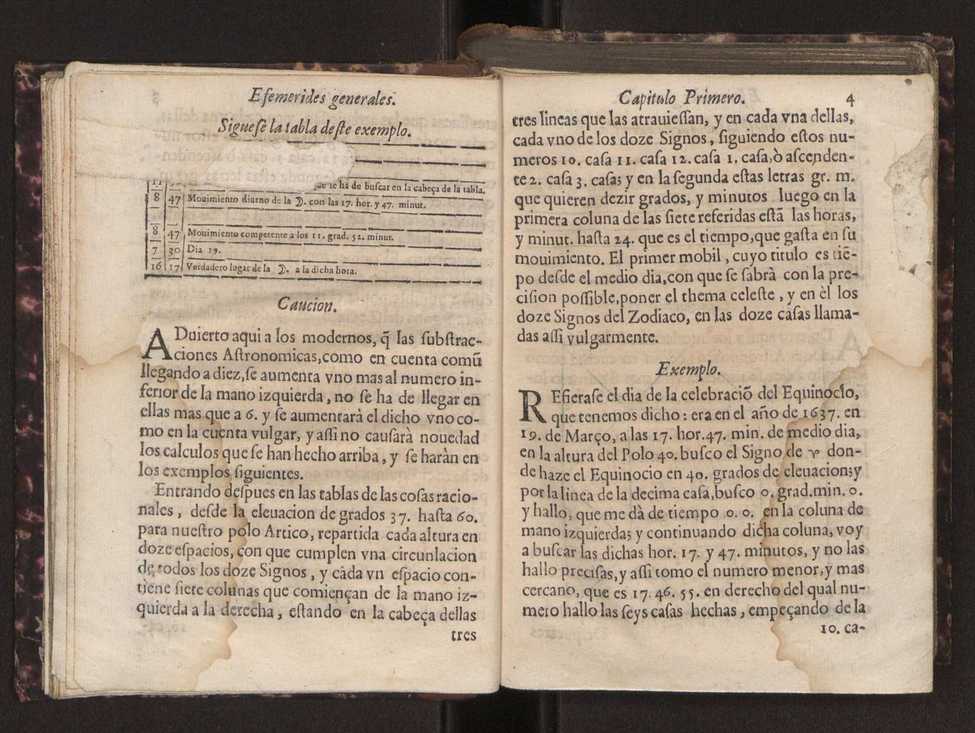 Efemerides generales.
Siguese la tabla deste exemplo.
se ha de buscar en la cabeça de la tabla.
8 47 Mouimiento diurno de la ☽. con las 17. hor. y 47. minut.
8 47 Mouimiento competente a los 11. grad. 52. minut.
7 30 Dia 19.
16 17 Verdadero lugar de la ☽. a la dicha hora.
Caucion.
ADuierto aqui a los modernos, q̃ las substrac-
ciones Astronomicas, como en cuenta comũ
llegando a diez, se aumenta vno mas al numero in-
ferior de la mano izquierda, no se ha de llegar en
ellas mas que a 6. y se aumentarà el dicho vno co-
mo en la cuenta vulgar, y assi no causarà nouedad
los calculos que se han hecho arriba, y se haràn en
los exemplos siguientes.
Entrando despues en las tablas de las cosas racio-
nales, desde la eleuacion de grados 37. hasta 60.
para nuestro polo Artico, repartida cada altura en
doze espacios, con que cumplen vna circunlacion
de todos los doze Signos, y cada vn espacio con-
tiene siete colunas que comiençan de la mano iz-
quierda a la derecha, estando en la cabeça dellas
tres
Capitulo Primero. 4
tres lineas que las atrauiessan, y en cada vna dellas,
cada vno de los doze Signos, siguiendo estos nu-
meros 10. casa 11. casa 12. casa 1. casa, ò ascenden-
te 2. casa 3. casa; y en la segunda estas letras gr. m.
que quieren dezir grados, y minutos luego en la
primera coluna de las siete referidas estã las horas,
y minut. hasta 24. que es el tiempo, que gasta en su
mouimiento. El primer mobil, cuyo titulo es tiẽ-
po desde el medio dia, con que se sabrà con la pre-
cision possible, poner el thema celeste, y en èl los
doze Signos del Zodiaco, en las doze casas llama-
das assi vulgarmente.
Exemplo.
REfierase el dia de la celebraciõ del Equinocio,
que tenemos dicho: era en el año de 1637. en
19. de Março, a las 17. hor. 47. min. de medio dia,
en la altura del Polo 40. busco el Signo de ♈ don-
de haze el Equinocio en 40. grados de eleuacion; y
por la linea de la decima casa, busco 0. grad. min. 0.
y hallo, que me dà de tiempo 0. 0. en la coluna de
mano izquierda; y continuando dicha coluna, voy
a buscar las dichas hor. 17. y 47. minutos, y no las
hallo precisas, y assi tomo el numero menor, y mas
cercano, que es 17. 46. 55. en derecho del qual nu-
mero hallo las seys casas hechas, empeçando de la
10. ca-